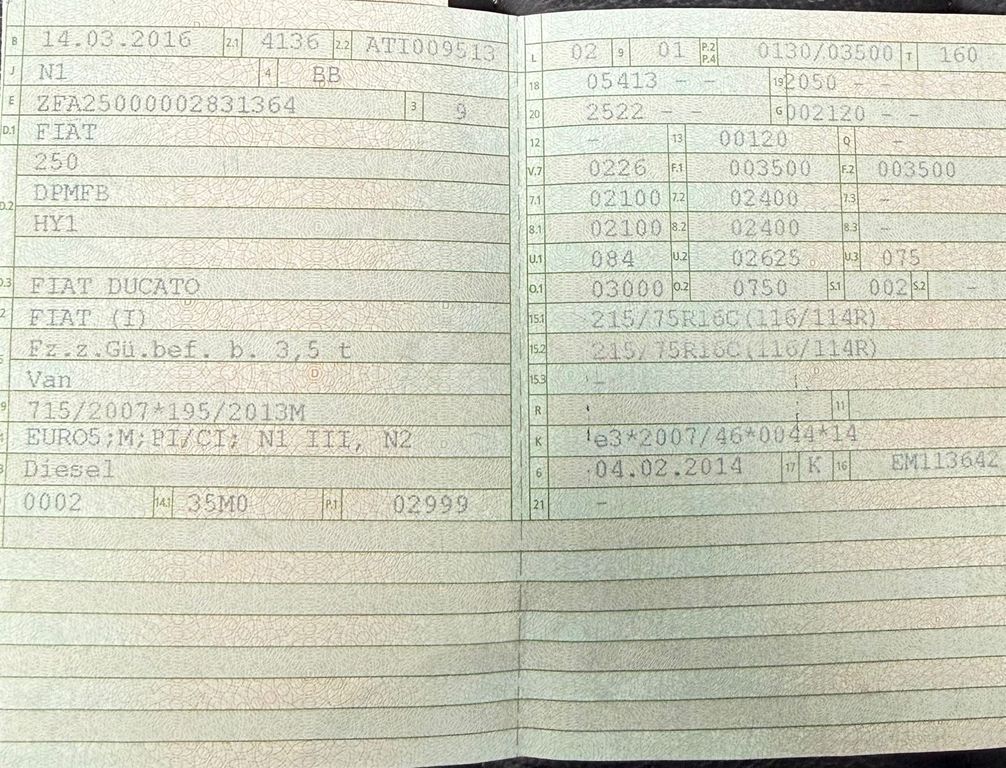 B 14.03.2016 2.1 4136 2.2 ATI009513
J N1 4 BB
E ZFA25000002831364 3 9
D.1 FIAT
250
D.2 DPMFB
HY1
D.3 FIAT DUCATO
2 FIAT (I)
5 Fz.z.Gü.bef. b. 3,5 t
Van
9 715/2007*195/2013M
EURO5;M;PI/CI; N1 III, N2
3 Diesel
0002 14.1 35M0 P.1 02999
L 02 9 01 P.2 P.4 0130/03500 T 160
18 05413 - - 19 2050 - -
20 2522 - - G 002120 - -
12 - 13 00120 Q -
V.7 0226 F.1 003500 F.2 003500
7.1 02100 7.2 02400 7.3 -
8.1 02100 8.2 02400 8.3 -
U.1 084 U.2 02625 U.3 075
O.1 03000 O.2 0750 S.1 002 S.2 -
15.1 215/75R16C(116/114R)
15.2 215/75R16C(116/114R)
15.3 -
R 11
K e3*2007/46*0044*14
6 04.02.2014 17 K 16 EM113642
21 -